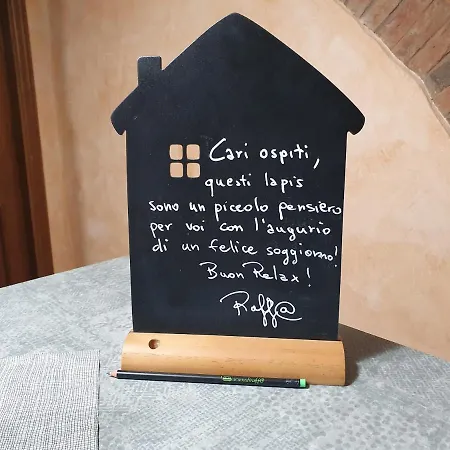 Cari ospiti,
questi lapis
sono un piccolo pensiero
per voi con l'augurio
di un felice soggiorno!
Buon Relax!
Raff@